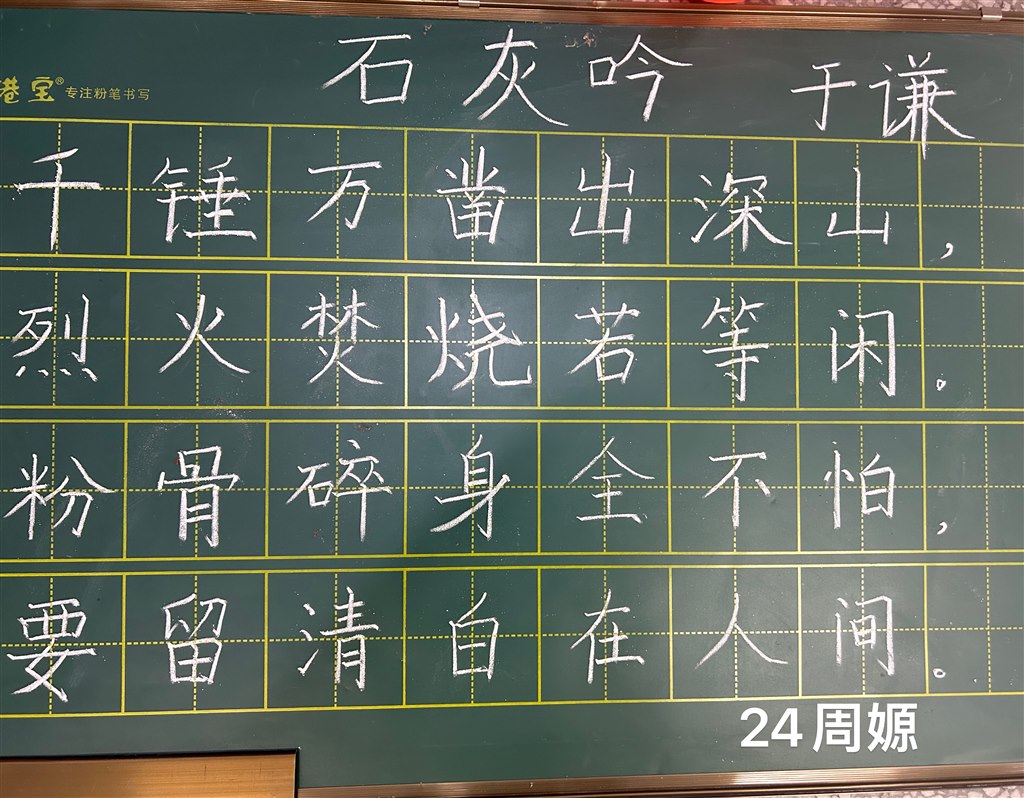 石灰吟 于谦
港宝® 专注粉笔书写
千锤万凿出深山，
烈火焚烧若等闲。
粉骨碎身全不怕，
要留清白在人间。
24周嫄